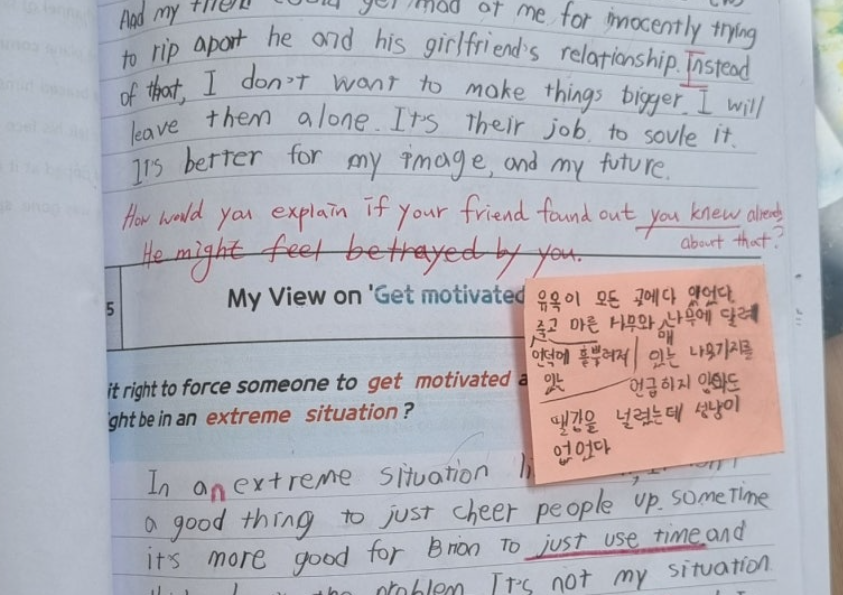 And my
mad at me for innocently trying
to rip apart he and his girlfriend's relationship. Instead
of that, I don't want to make things bigger. I will
leave them alone. It's their job. to soule it.
It's better for my image, and my future.
How would you explain if your friend found out you knew already
about that?
He might feel betrayed by you.
5
My View on 'Get motivated
it right to force someone to get motivated a
ght be in an extreme situation ?
유목이 모든 곳에다 있었다.
죽고 마른 나무와 나무에 달려
언덕에 흩뿌려져 있는 나뭇가지를
있는 언급하지 않아도
땔감은 널렸는데 성냥이
없었다
In an extreme situation
a good thing to just cheer people up. sometime
it's more good for Brian to just use time and
problem It's not my situation